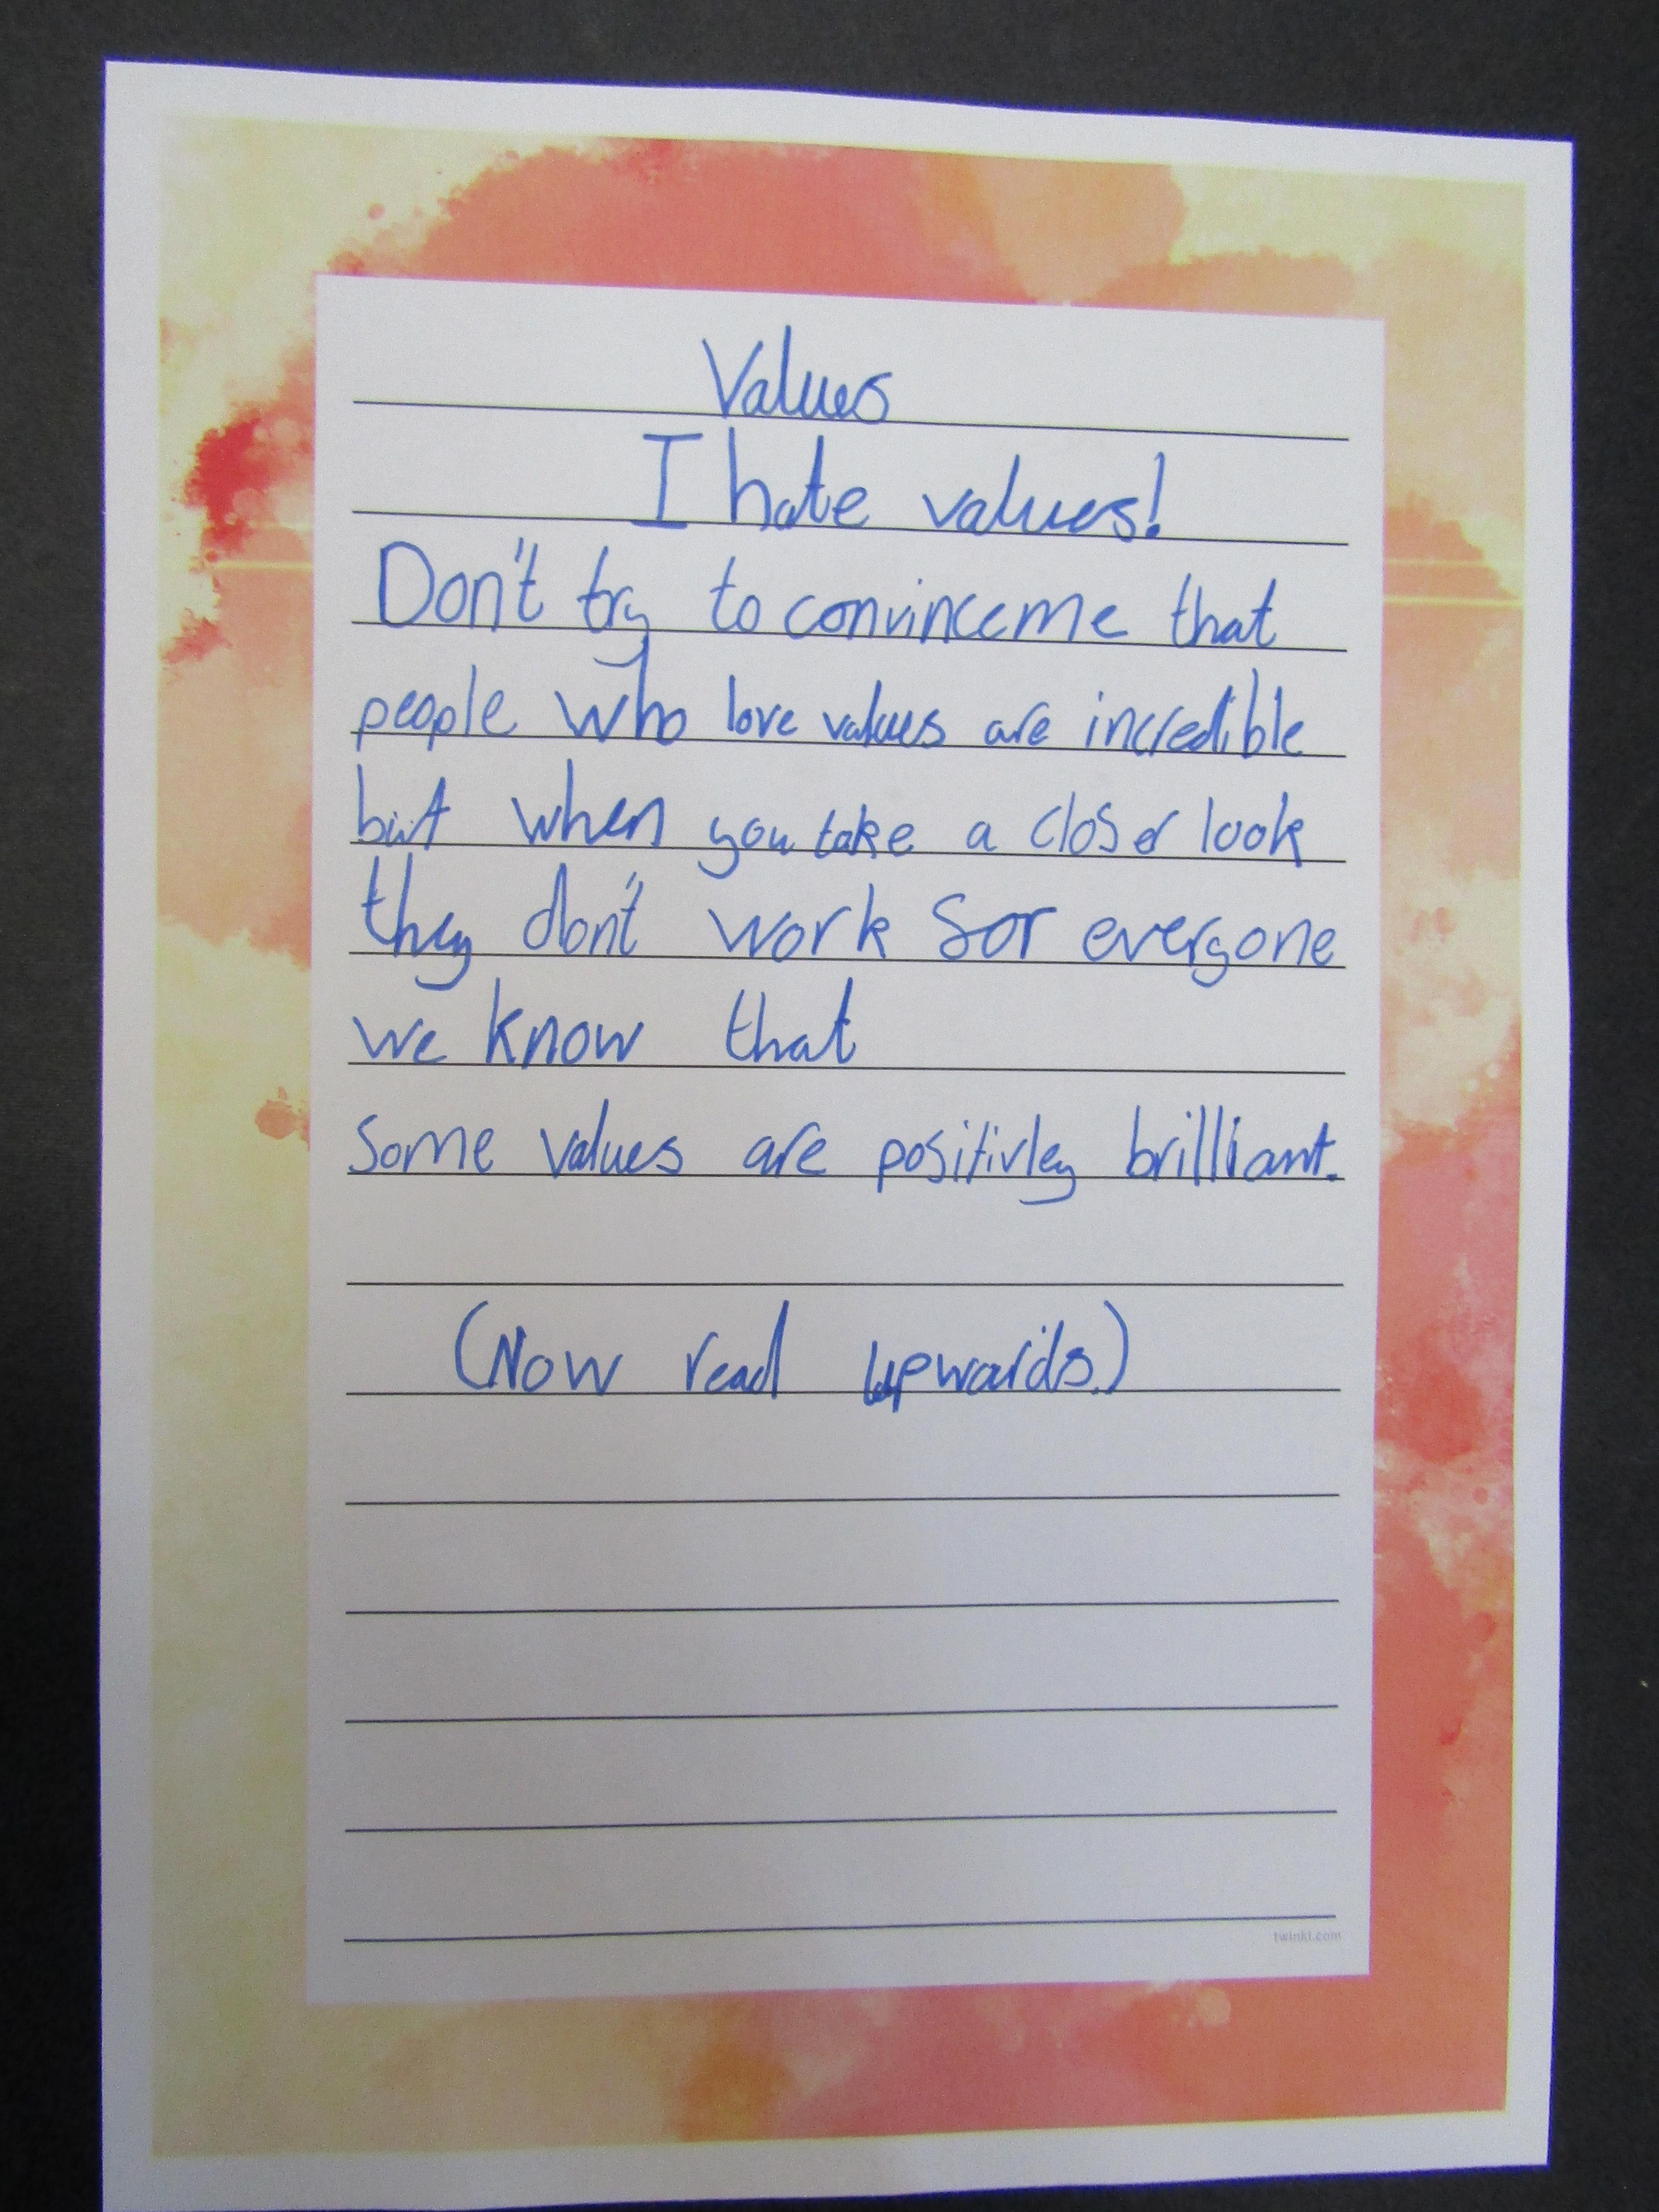 Values
I hate values!
Don't try to convince me that
people who love values are incredible
but when you take a closer look
they don't work for everyone
we know that
Some values are positivley brilliant.
(Now read upwards.)
twinkl.com